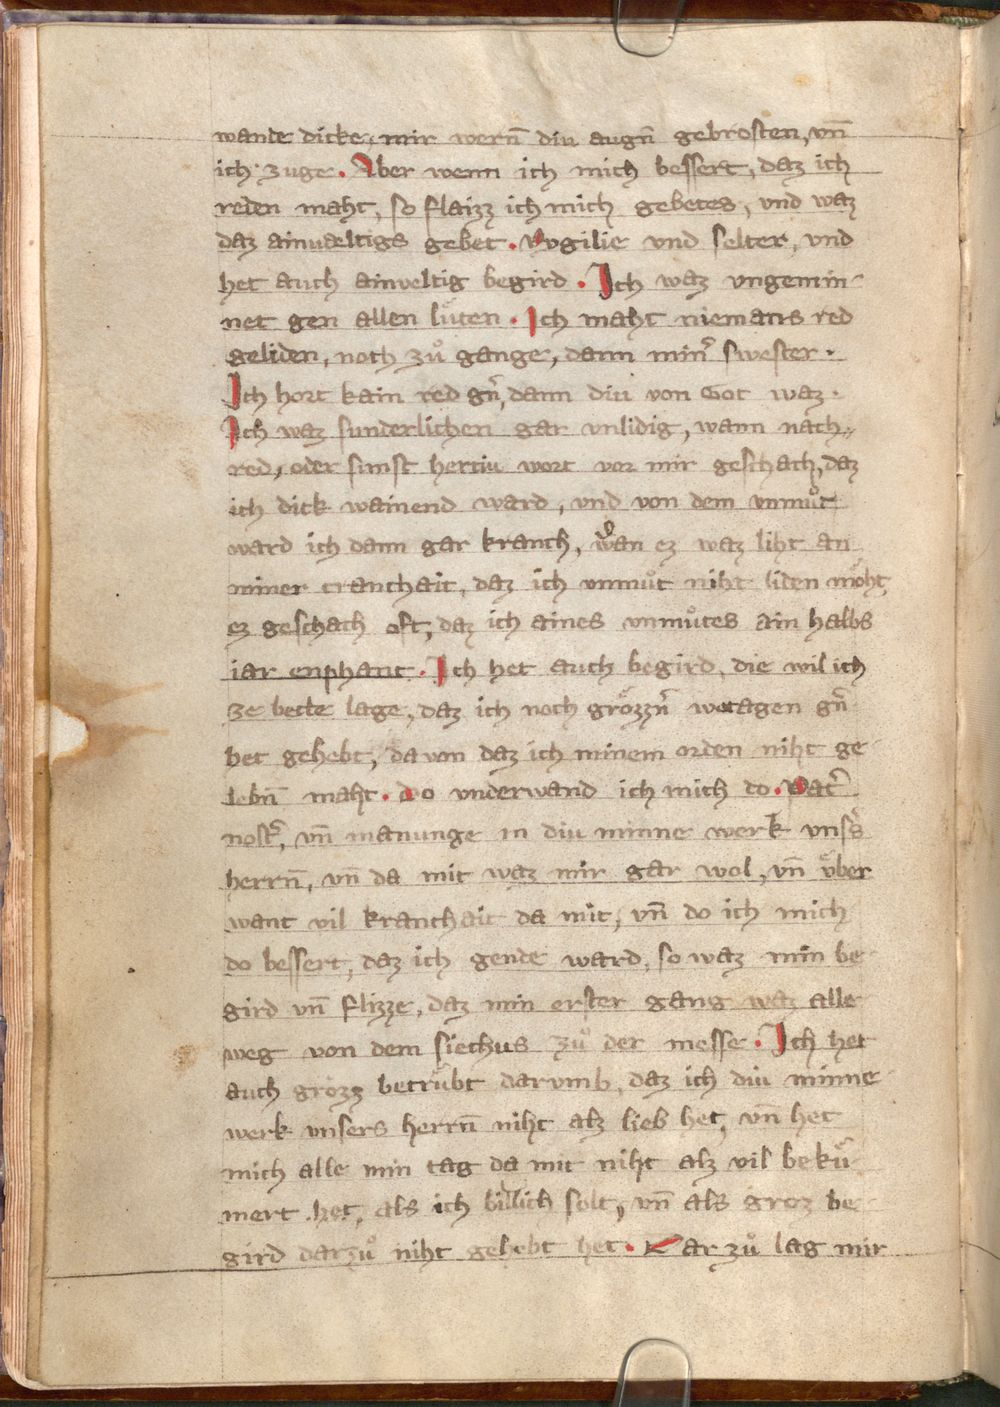 wande dicke, mir wern̄ diu augn̄ gebrosten, vn̄
ich zuge. Aber wenn ich mich bessert, daz ich
reden maht, so flaizz ich mich gebetes, vnd waz
daz ainuaeltigs gebet. Vygilie vnd selter, vnd
het auch ainveltig begird. Ich waz vngemin-
net gen allen luͤten. Ich maht niemans red
geliden, noch zuͦ gange, dann min᷒ swester.
Ich hort kain red gn᷒, dann diu von Got waz.
Ich waz sunderlichen gar vnlidig, wann nach-
red, oder sunst hertiu wort vor mir geschach, daz
ich dick wainend ward, vnd von dem vnmuͦt
ward ich dann gar kranch, wan ez waz liht an
miner cranchait, daz ich vnmuͦt niht liden moͤht,
ez geschach oft, daz ich aines vnmuͦtes ain halbs
iar enphant. Ich het auch begird, die wil ich
ze bette lage, daz ich noch groͤzzn᷒ wetagen gn᷒
het gehebt, da von daz ich minem orden niht ge
lebn̄ maht. do vnderwand ich mich do. Pat᷒
nost᷒, vn̄ manunge in diu minne werk vns᷒s
herrn̄, vn̄ da mit waz mir gar wol, vn̄ vͤber
want vil kranchait da mit, vn̄ do ich mich
do bessert, daz ich gende ward, so waz min be
gird vn̄ flizze, daz min erster gang waz alle
weg von dem siechus zuͦ der messe. Ich het
auch grozz betruͤbt darvmb, daz ich diu minne
werk vnsers herrn̄ niht alz lieb het, vn̄ het
mich alle min tag da mit niht alz vil bekuͤ
mert het, als ich billich solt, vn̄ als groz be
gird darzuͦ niht gehebt het. Dar zuͦ lag mir